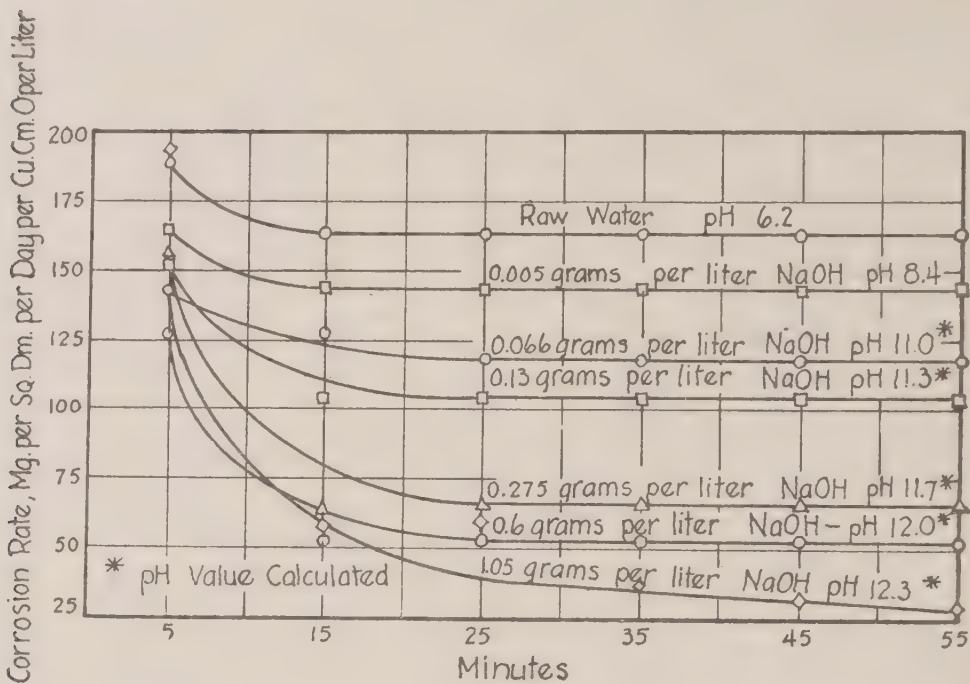 Corrosion Rate, Mg. per Sq. Dm. per Day per Cu. Cm. O per Liter
200
175
150
125
100
75
50
25
Raw Water pH 6.2
0.005 grams per liter NaOH pH 8.4
0.066 grams per liter NaOH pH 11.0*
0.13 grams per liter NaOH pH 11.3*
0.275 grams per liter NaOH pH 11.7*
0.6 grams per liter NaOH - pH 12.0*
1.05 grams per liter NaOH pH 12.3 *
* pH Value Calculated
5 15 25 35 45 55
Minutes